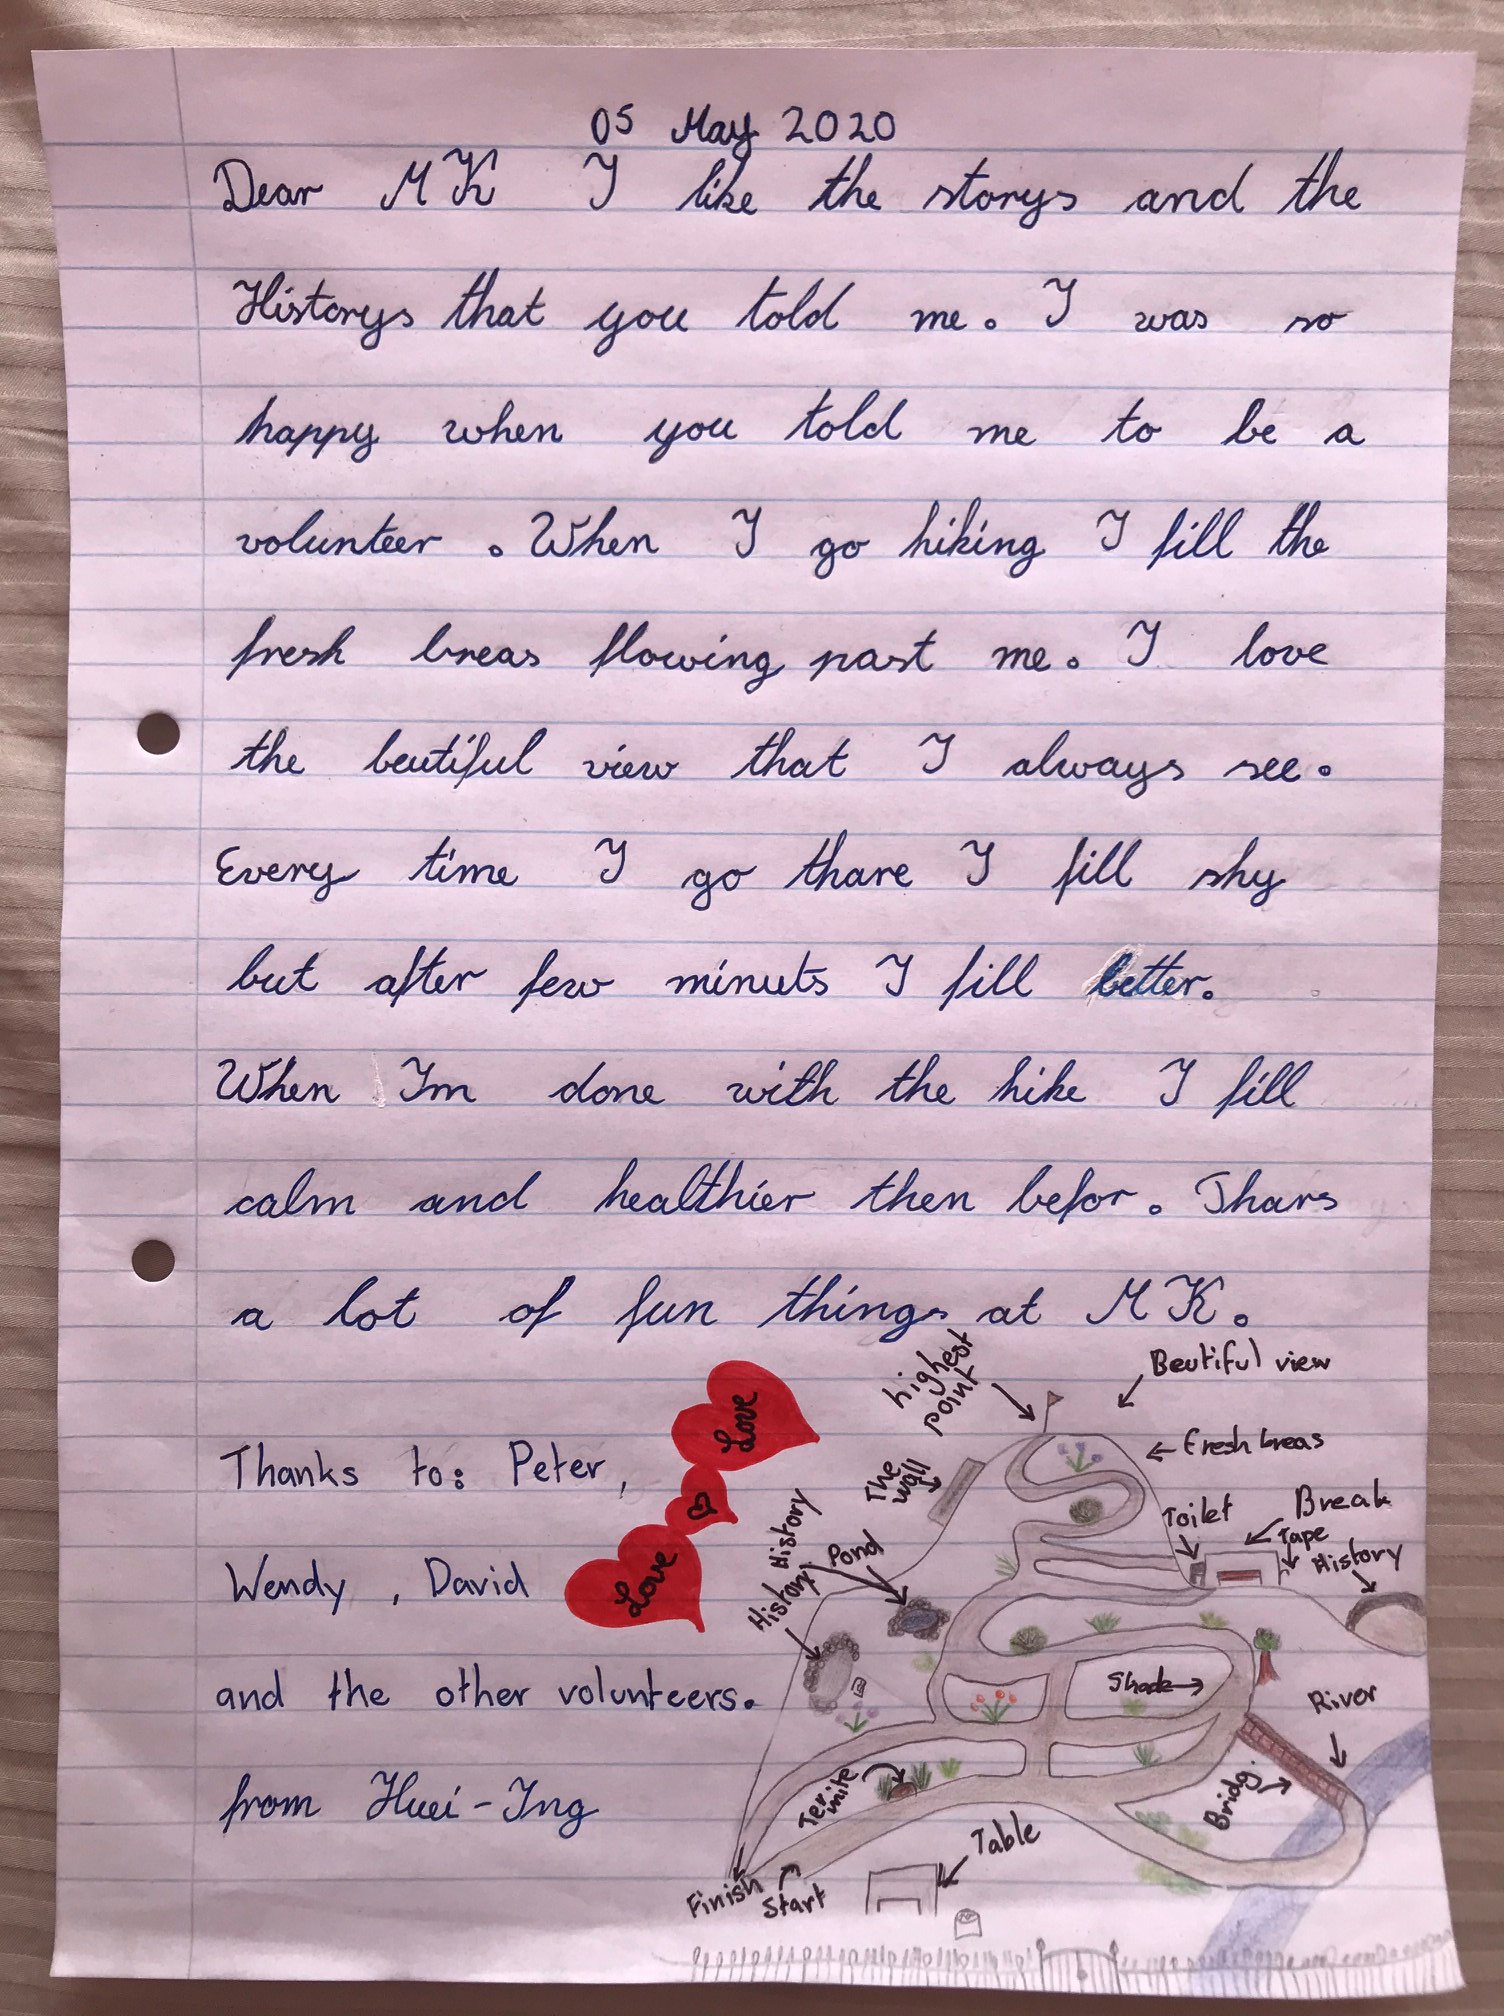 05 May 2020
Dear MK I like the storys and the
Historys that you told me. I was so
happy when you told me to be a
volunteer. When I go hiking I fill the
fresh breas flowing past me. I love
the beutiful view that I always see.
Every time I go thare I fill shy
but after few minuts I fill better.
When Im done with the hike I fill
calm and healthier then befor. Thars
a lot of fun things at MK.
Thanks to: Peter,
Wendy, David
and the other volunteers.
from Huei-Ing
Love
Love
highest
point
Beutiful view
The
wall
Fresh breas
History
Pond
History
Toilet
Break
Tape
History
Shade
River
Termite
Bridg.
Table
Finish
Start